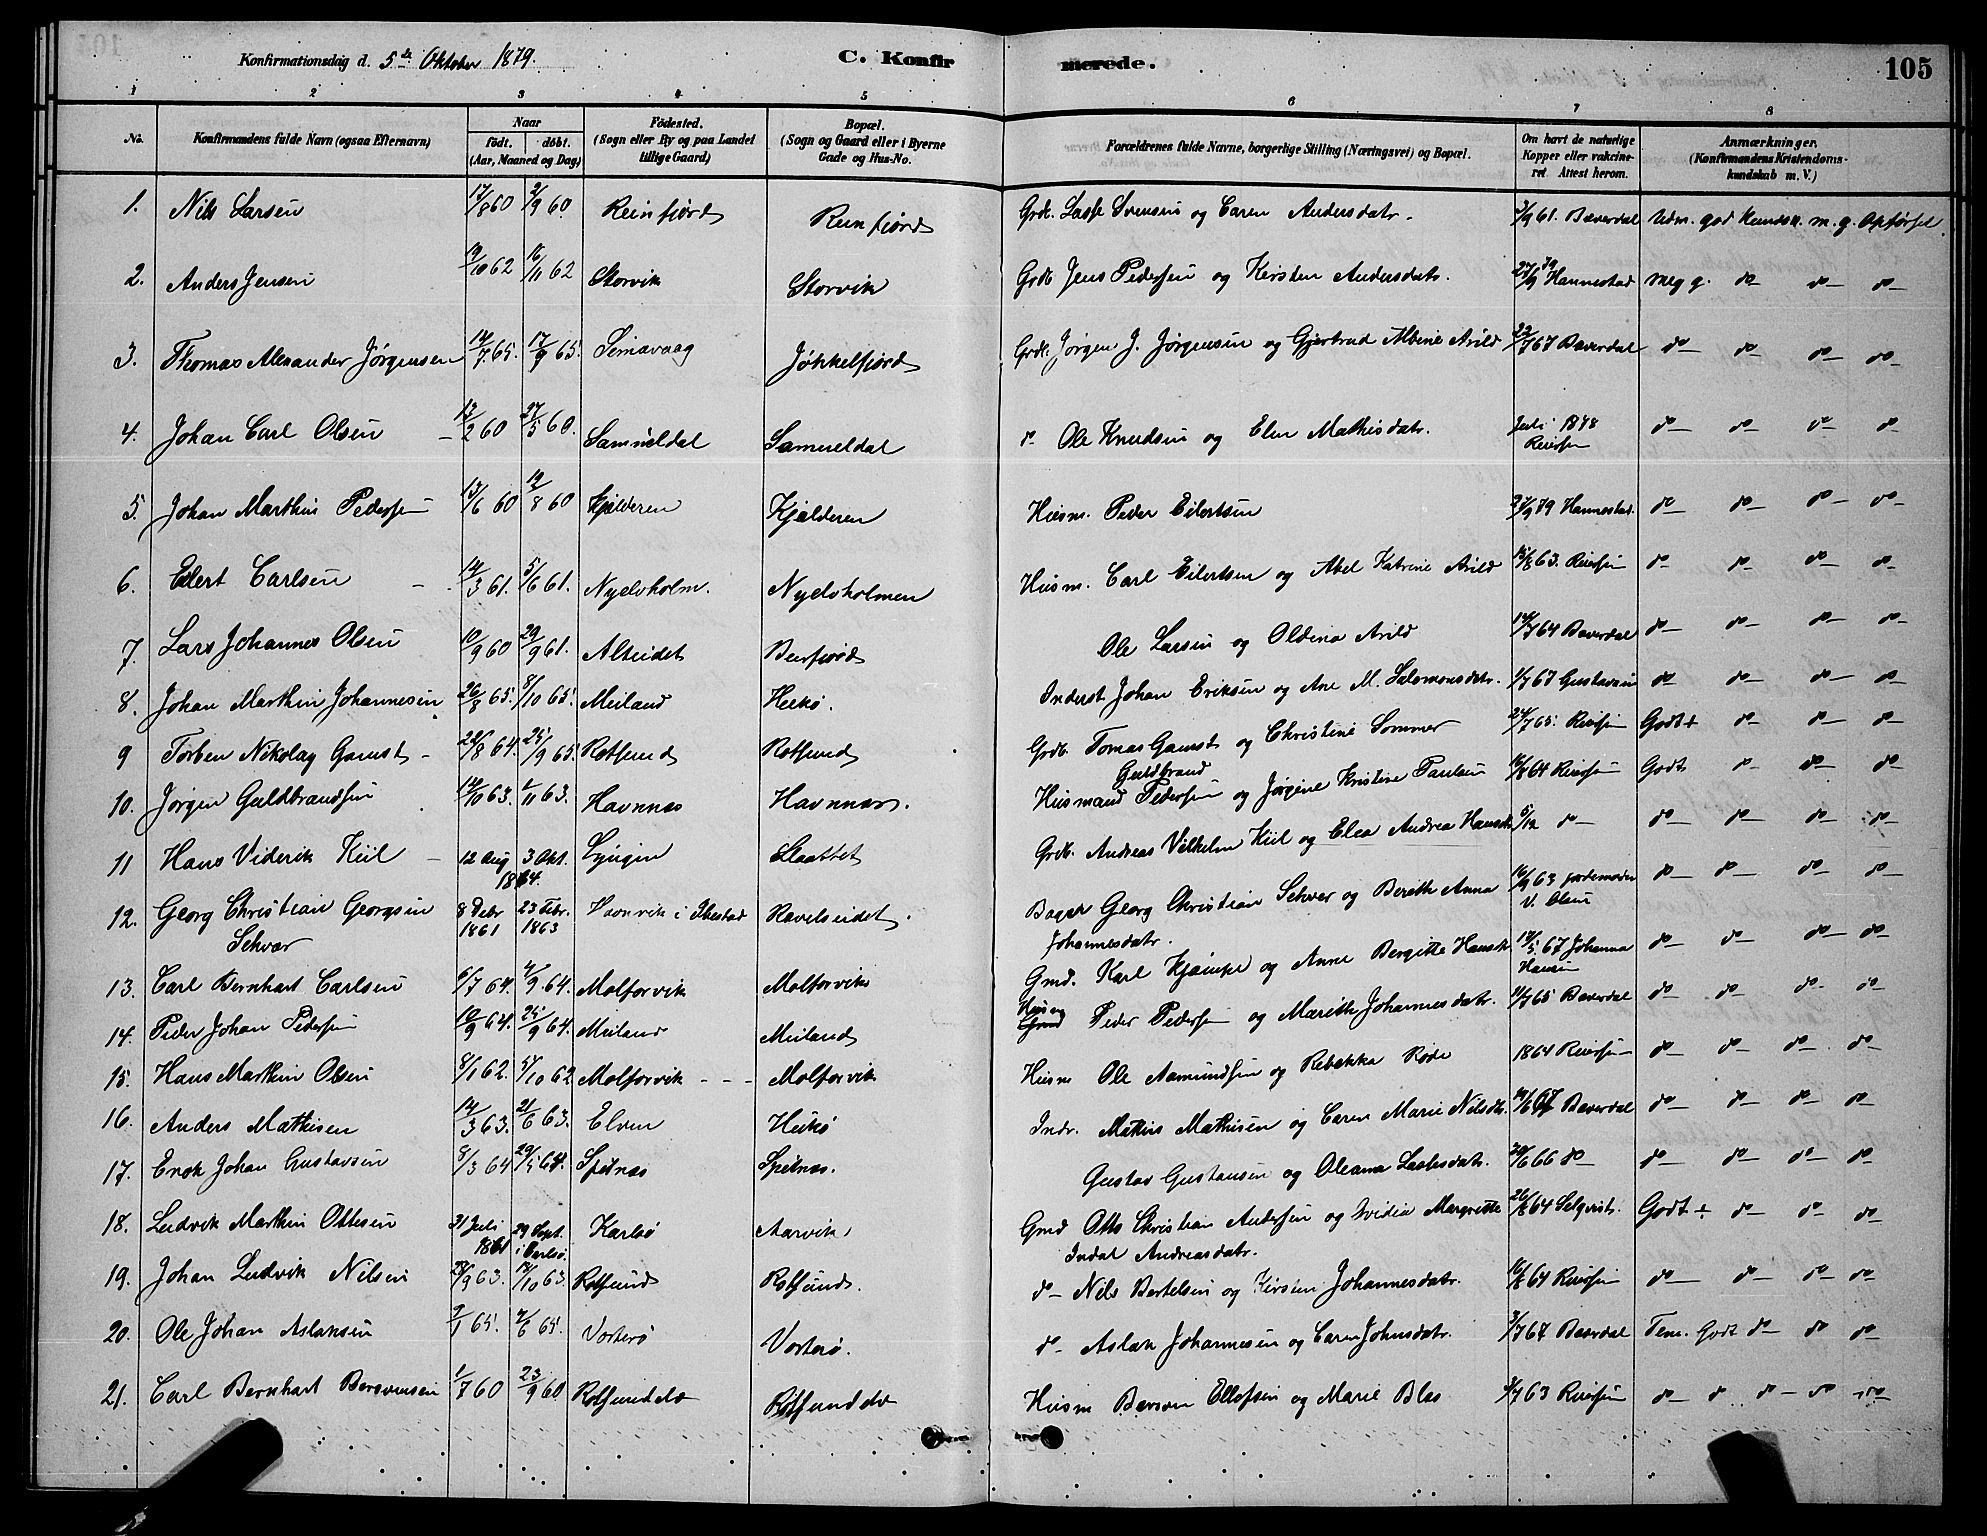 Konfirmationsdag d. 5te Oktober 1879. C. Konfirmerede. 105
1 2 3 4 5 6 7 8
No. Konfirmandens fulde Navn (ogsaa Efternavn) Naar født. døbt. (Aar, Maaned og Dag) Fødested. (Sogn eller By og paa Landet tillige Gaard) Bopæl. (Sogn og Gaard eller i Byerne Gade og Hus-No. Forældrenes fulde Navne, borgerlige Stilling (Næringsvei) og Bopæl. Om havt de naturlige Kopper eller vakcineret Attest herom. Anmærkninger. (Konfirmandens Kristendomskundskab m. V.)
1. Nils Larsen 17/8 60 2/9 60 Reinfjord Reinfjord Grdb. Lasse Svensen og Caren Andersdatr. 3/9 61. Baverdal Udm. god Kundsk. m. g. Opførsel
2. Anders Jensen 19/10 62 16/11 62 Storvik Storvik Grdb Jens Pedersen og Kirsten Andersdatr. 27/9 79 Hannestad meg g. do do do
3. Thomas Alexander Jørgensen 14/7 65. 17/9 65. Simavaag Jøkkelfjord Grdb. Jørgen J. Jørgensen og Gjertrud Albine Arild 22/7 67 Baverdal do do do do
4. Johan Carl Olsen 13/2 60 27/5 60. Samueldal Samueldal do Ole Knudsen og Elen Mathisdatr. Juli 1878 Reiersen do do do do
5. Johan Marthin Pedersen 13/6 60 12/8 60 Kjelderen Kjelderen Husm. Peder Eilertsen 27/9 79 Hannestad. do do do do
6. Edert Carlsen 14/3 61. 5/6 61. Nyelvholm. Nyelvholmen Husm. Carl Eilertsen og Abel Katrine Arild 15/8 63. Reiersen do do do do
7. Lars Johannes Olsen 10/9 60 29/9 61. Alteidet Burfjord Ole Larsen og Oldina Arild 14/7 64 Baverdal do do do do
8. Johan Marthin Johannesen 26/8 65. 8/10 65. Meiland Hukø Inderst Johan Eriksen og Ane M. Salomonsdatr. 1/7 67 Gustavsen do do do do
9 Torben Nikolay Gamst 22/8 64. 25/9 65. Rotsund Rotsund Grdb. Tomas Gamst og Christine Sommer 24/7 65. Reiersen Godt + do do do
10. Jørgen Guldbrandsen 14/10 63. 1/11 63. Havnnæs Havnnæs. Husmand Guldbrand Pedersen og Jørgine Kristine Paulsen 16/8 64 Reiersen Godt do do do
11 Hans Viderik Kiil 12 Aug 3 Okt. 1864. Lyngen Slaattet Grdb. Andreas Vilhelm Kiil og Elea Andrea Hansdtr 5/12 do do do do do
12. Georg Christian Georgsen Schvær 8 Debr 1861 23 Febr. 1863 Havnvik i Ibestad Ravelseidet. Georg Christian Schvær og Berith Anna Johannesdatr. 16/9 63 jordemoder V. Olsen do do do do
13. Carl Bernhart Carlsen 6/7 64. 4/9 64. Molforvik Molforvik Gmd. Karl Kjæmpe og Anne Bergitte Hansdtr 18/5 67 Johanna Hansen do do do do
14. Peder Johan Pedersen 10/9 64. 25/9 64. Meiland Meiland Peder Pedersen og Marith Johannesdatr. 11/7 65 Baverdal do do do do
15. Hans Marthin Olsen 8/1 62. 5/10 62 Molforvik Molforvik Husm Ole Aamundsen og Rebekka Røde 1864 Reiersen do do do do
16. Anders Mathisen 14/3 63. 21/6 63. Elven Hukø Indr. Mathis Mathisen og Caren Marie Nilsdtr. 14/6 67 Baverdal do do do do
17. Enok Johan Gustavsen 8/3 64 29/5 64. Spitnæs Spitnæs. Gustav Gustavsen og Oleana Lasesdatr. 30/6 66 do do do do do
18. Ludvik Marthin Ottesen 21 Juli 1861 29 Sept. i Carlsø. Karlsø Aarvik Gmd Otto Christian Andersen og Ovidia Margrette Indal Andreasdatr. 26/8 64 Selqvist. Godt + do do do
19. Johan Ludvik Nilsen 28/9 63. 18/10 63. Rotsund Rotsund. do Nils Bertelsen og Kirsten Johannesdatr. 16/8 64 Reiersen do do do do
20. Ole Johan Aslaksen 2/1 65. 4/6 65. Vorterø Vorterø. do Aslak Johannesen og Caren Johnsdatr. 3/7 67 Baverdal Tem. Godt do do do
21. Carl Bernhart Bersvensen 1/7 60 23/9 60 Rotsunddal Rotsunddal Husm Bersven Ellefsen og Marie Blas 7/7 63 Reiersen do do do do do